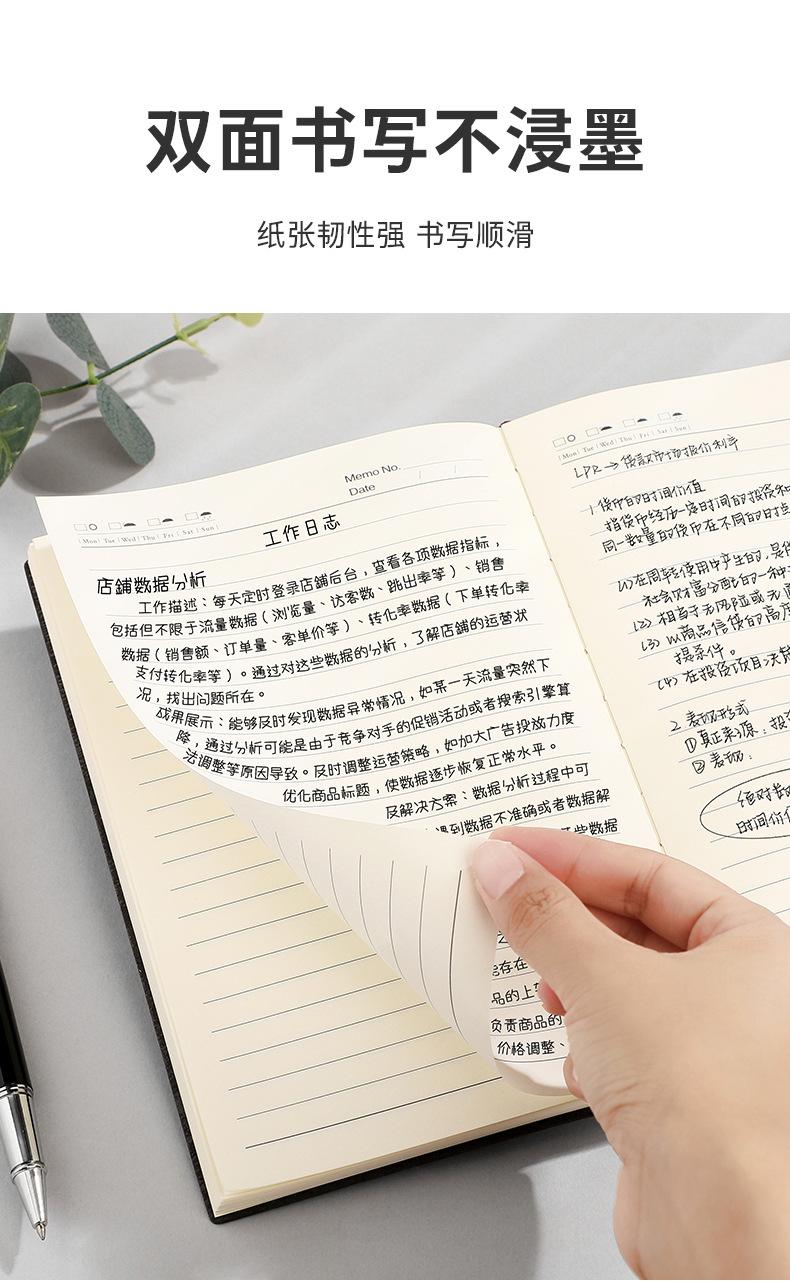 双面书写不浸墨
纸张韧性强 书写顺滑
Memo No.
Date
Mon Tue Wed Thu Fri Sat Sun
工作日志
店铺数据分析
工作描述：每天定时登录店铺后台，查看各项数据指标，
包括但不限于流量数据（浏览量、访客数、跳出率等）、销售
数据（销售额、订单量、客单价等）、转化率数据（下单转化率
支付转化率等）。通过对这些数据的分析，了解店铺的运营状
况，找出问题所在。
成果展示：能够及时发现数据异常情况，如某一天流量突然下
降，通过分析可能是由于竞争对手的促销活动或者搜索引擎算
法调整等原因导致。及时调整运营策略，如加大广告投放力度
优化商品标题，使数据逐步恢复正常水平。
及解决方案：数据分析过程中可
遇到数据不准确或者数据解
些数据
能存在
品的上
负责商品的
价格调整、
Mon Tue Wed Thu Fri Sat Sun
LPR→贷款市场报价利率
1 货币的时间价值
指货币经历一定时间的投资和
同一数量的货币在不同的时点
(1) 在周转使用中产生的，是
社会财富分配的一种
(2) 相当于无风险或无
(3) 以商品信贷的高度
提条件。
(4) 在投资项目决
2. 表现形式
①真正来源：投
②表现：
绝对
时间价